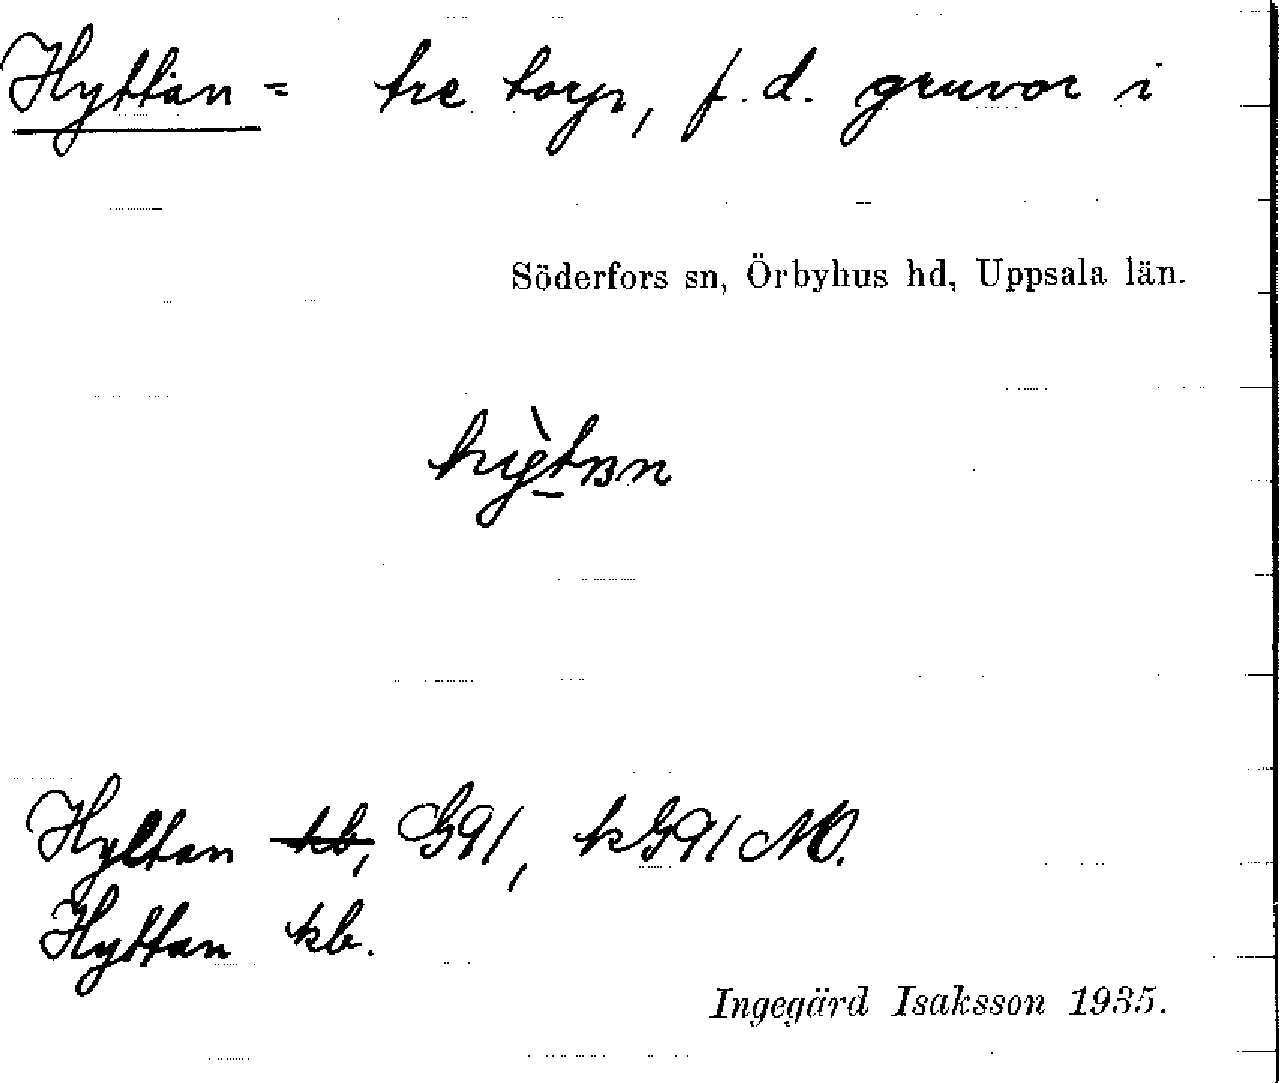 Hyttan = tre torp, f.d. gruvor i
Söderfors sn, Örbyhus hd, Uppsala län.
hỳtan
Hyltan kb, G91, kG91 MO.
Hyttan kb.
Ingegärd Isaksson 1935.